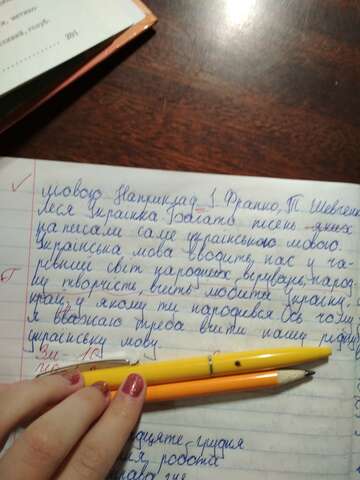 я, читно-
301
мовою Наприклад І. Франко, Т. Шевчен
Леся Українка Багато пісень яких
написали саме українською мовою.
Українська мова вводить нас у ча-
рівний світ народних вірувань, народ-
ну творчість, вчить любити Україну.
край, у якому ти народився Ось чому
я вважаю треба вчити нашу рідну
українську мову
дцяте грудня
робота